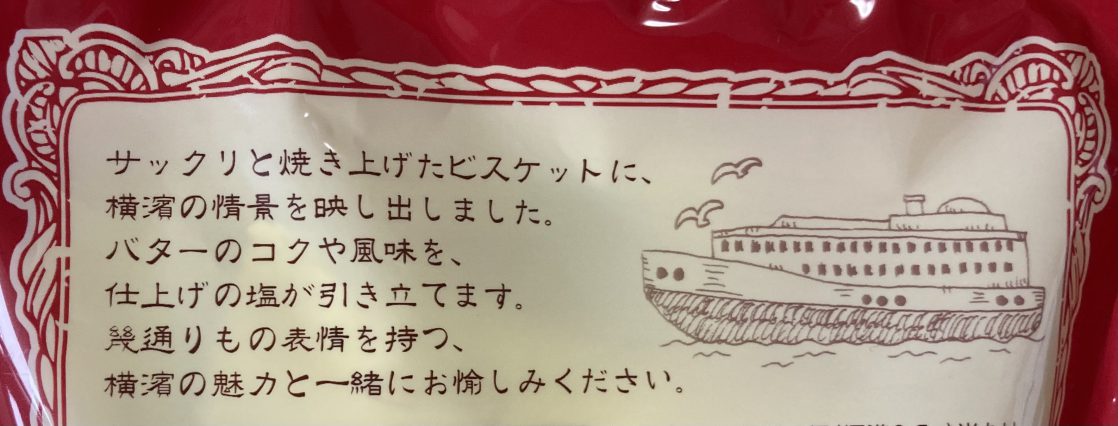 サックリと焼き上げたビスケットに、
横濱の情景を映し出しました。
バターのコクや風味を、
仕上げの塩が引き立てます。
幾通りもの表情を持つ、
横濱の魅力と一緒にお愉しみください。